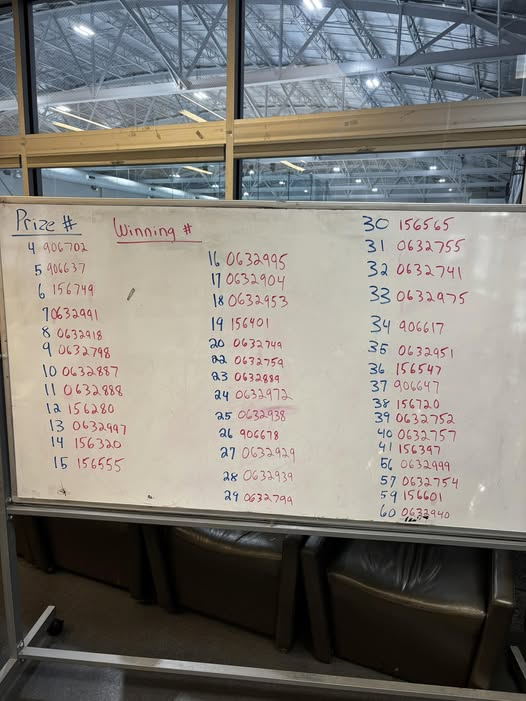 Prize #
Winning #
4 906702
5 906637
6 156749
7 0632991
8 0632918
9 0632798
10 0632887
11 0632888
12 156280
13 0632997
14 156320
15 156555
16 0632995
17 0632904
18 0632953
19 156401
20 0632749
22 0632759
23 0632889
24 0632972
25 0632938
26 906678
27 0632929
28 0632939
29 0632799
30 156565
31 0632755
32 0632741
33 0632975
34 906617
35 0632951
36 156547
37 906647
38 156720
39 0632752
40 0632757
41 156397
56 0632999
57 0632754
59 156601
60 0632940